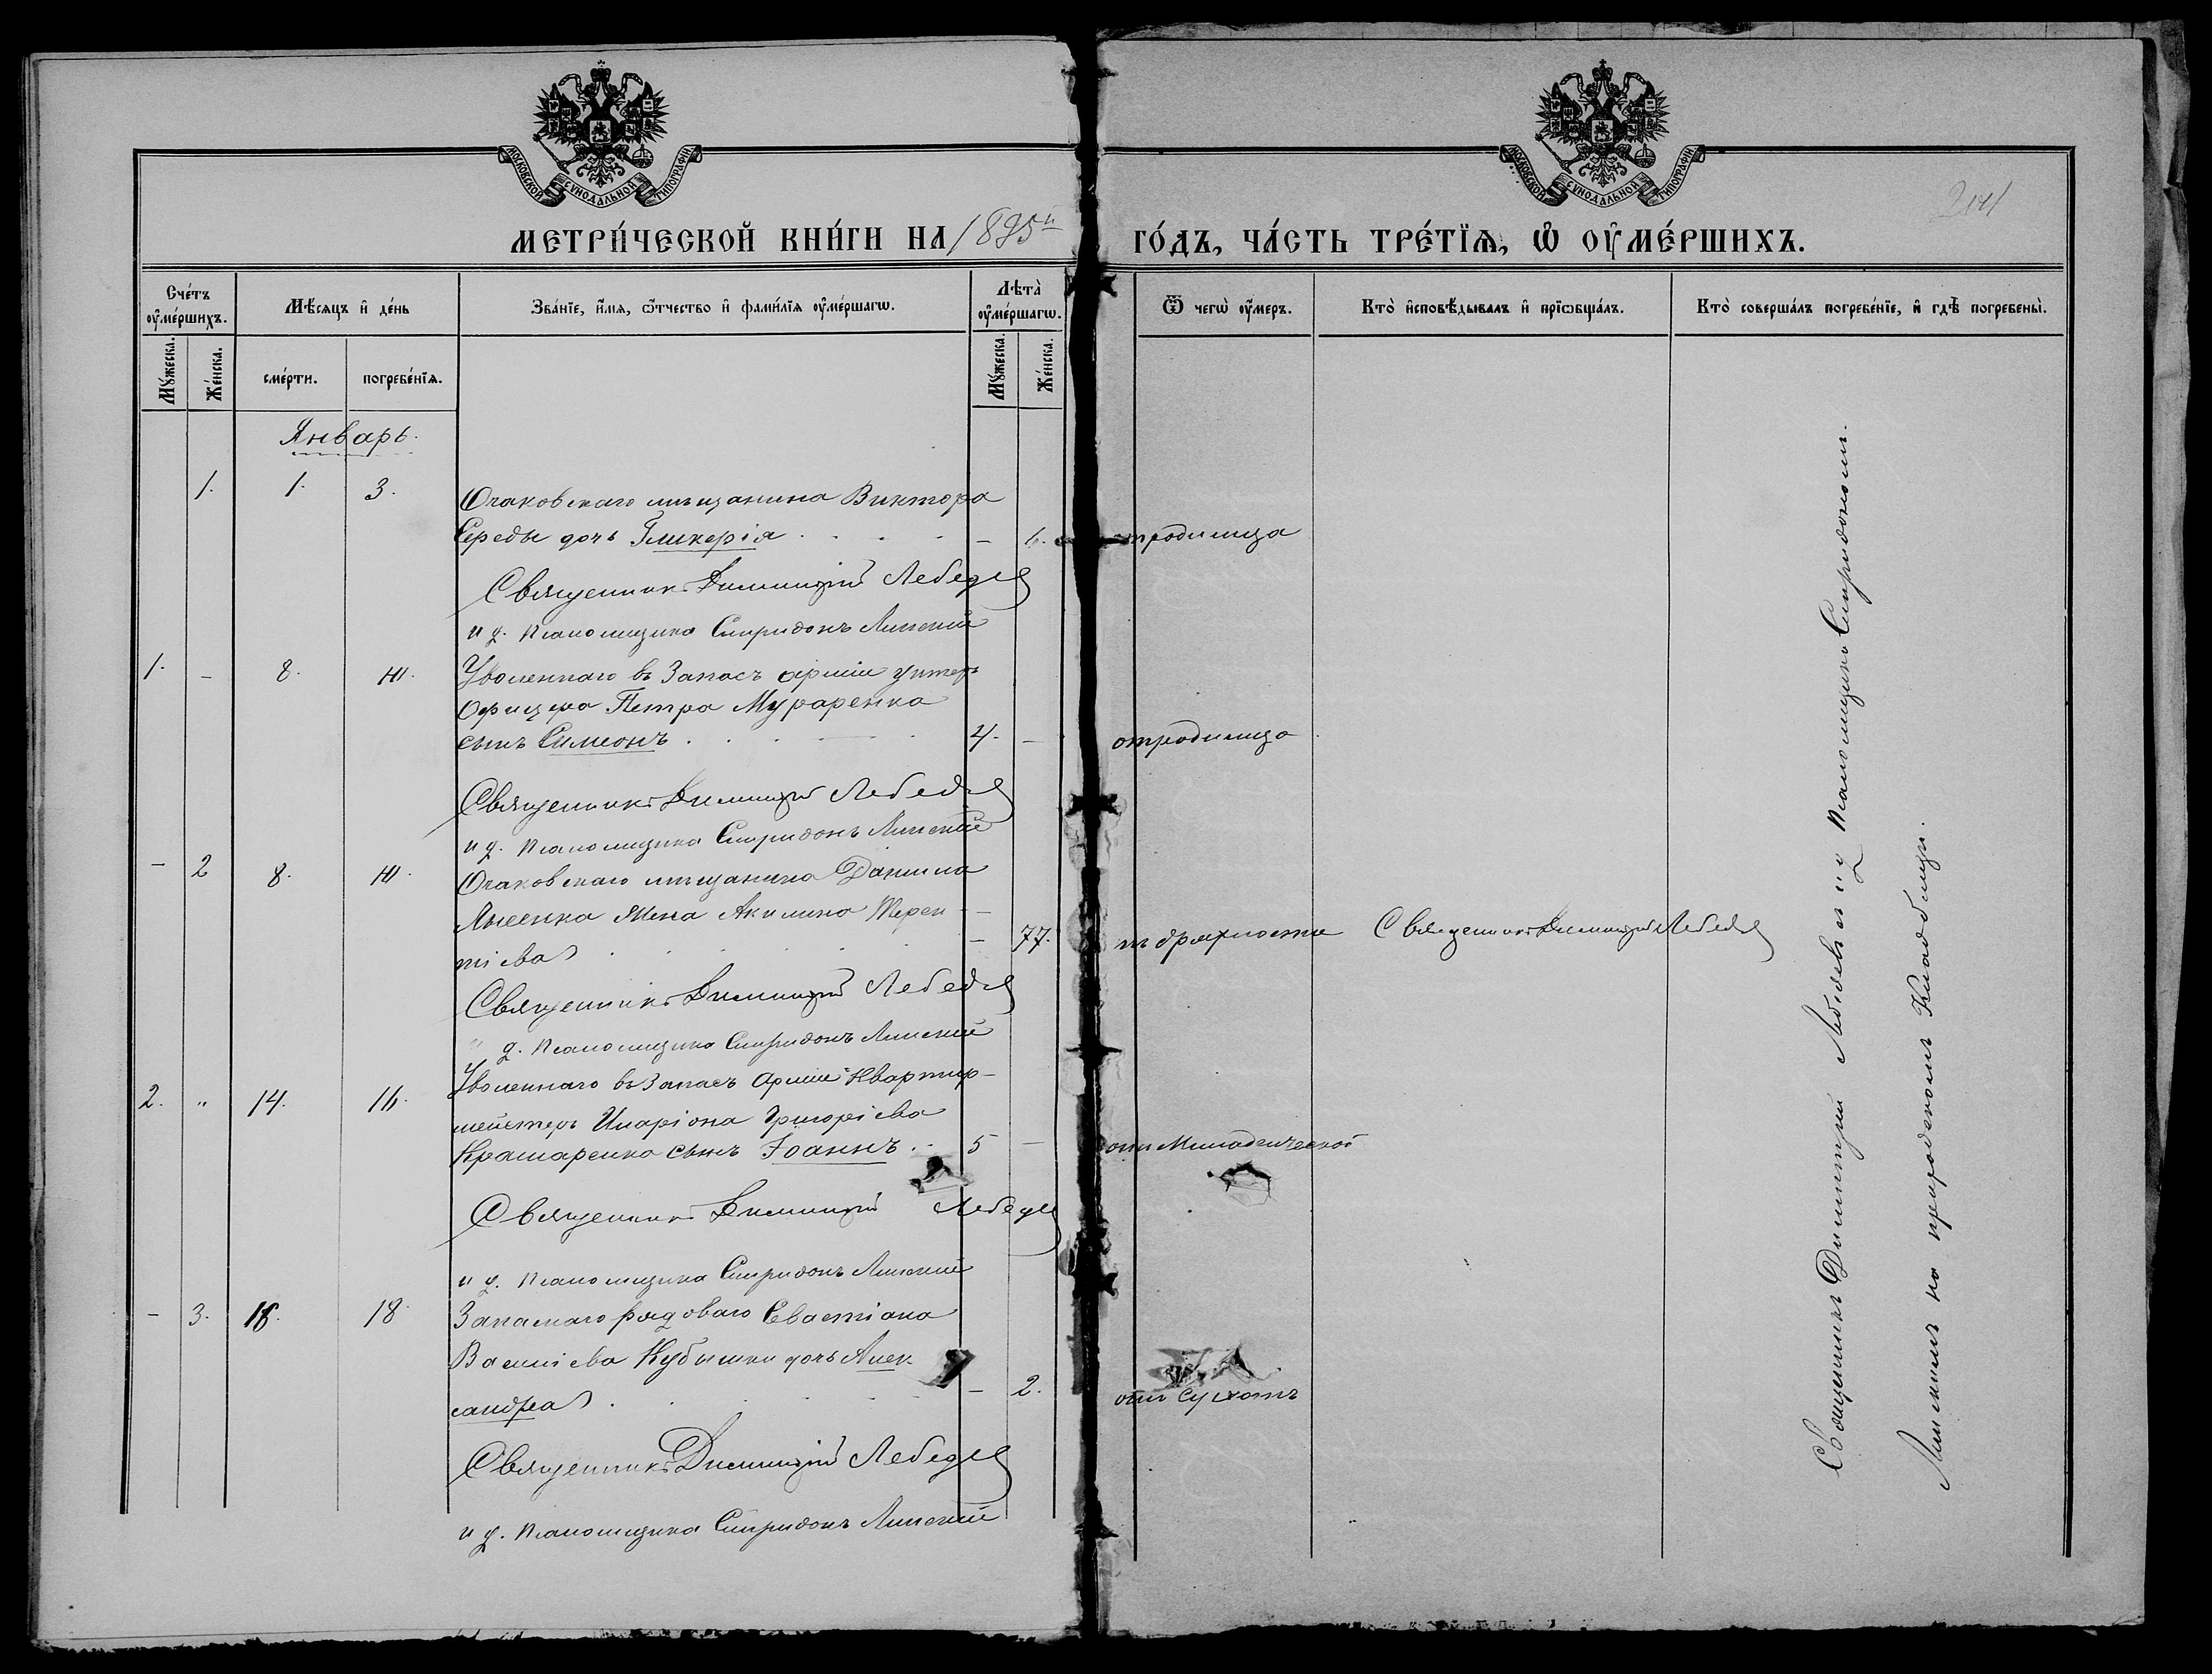 МОСКОВСКОЙ СУНОДАЛЬНОЙ ТИПОГРАФІИ
МОСКОВСКОЙ СУНОДАЛЬНОЙ ТИПОГРАФІИ
МЕТРИ́ЧЕСКОЙ КНИ́ГИ НА 1895й ГО́ДЪ, ЧА́СТЬ ТРЕ́ТЇѦ, Ѡ҆ ОУ҆МЕ́РШИХЪ.
Сче́тъ оу҆ме́ршихъ.
Мѣ́сѧцъ и҆ де́нь
Зва́нїе, и҆́мѧ, ѻ҆́тчество и҆ фами́лїѧ оу҆ме́ршагѡ.
Лѣта̀ оу҆ме́ршагѡ.
Ѿ чегѡ̀ оу҆́меръ.
Кто̀ и҆сповѣ́дывалъ и҆ прїѡбща́лъ.
Кто̀ соверша́лъ погребе́нїе, и҆ гдѣ̀ погребены̀.
Мꙋ́жеска.
Же́нска.
сме́рти.
погребе́нїѧ.
Мꙋ́жеска.
Же́нска.
Январь.
1. 1. 3. Очаковскаго мѣщанина Виктора
Середы дочь Гликерія - 6. отродимца
Священникъ Димитрій Лебедев
и д. псаломщика Спиридонъ Липскій
1. - 8. 10. Уволеннаго въ Запасъ арміи унтеръ
Офицера Петра Мураренка
сынъ Симеонъ 4. - отродимца
Священникъ Димитрій Лебедев
и д. псаломщика Спиридонъ Липскій
- 2 8. 10. Очаковскаго мѣщанина Данила
Лысенка жена Акилина Терен-
тіева - 77. отъ дряхлости Священникъ Димитрій Лебедев
Священникъ Димитрій Лебедев
и д. псаломщика Спиридонъ Липскій
2. " 14. 16. Уволеннаго въ Запасъ Арміи Квартир-
мейстеръ Иларіона Григоріева
Крамаренко сынъ Іоаннъ 5 - отъ Младенческой
Священникъ Димитрій Лебедев
и д. псаломщика Спиридонъ Липскій
- 3. 16. 18. Запаснаго рядоваго Севастіана
Василіева Кубышки дочь Алек
сандра - 2. отъ Сухотъ
Священникъ Димитрій Лебедев
и д. псаломщика Спиридонъ Липскій
Священникъ Димитрій Лебедевъ и д псаломщика Спиридономъ
Липскимъ на приходскомъ Кладбищѣ.